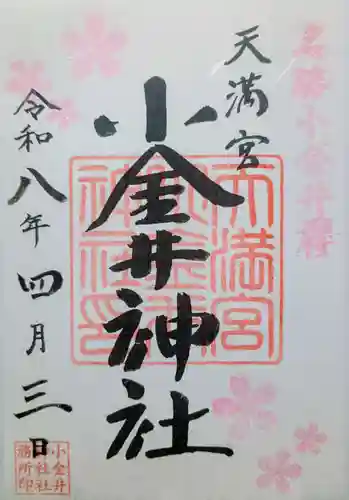 名勝小金井桜
天満宮
小金井神社
天満宮
小金井
神社印
令和八年四月三日
小金井
神社社
務所印